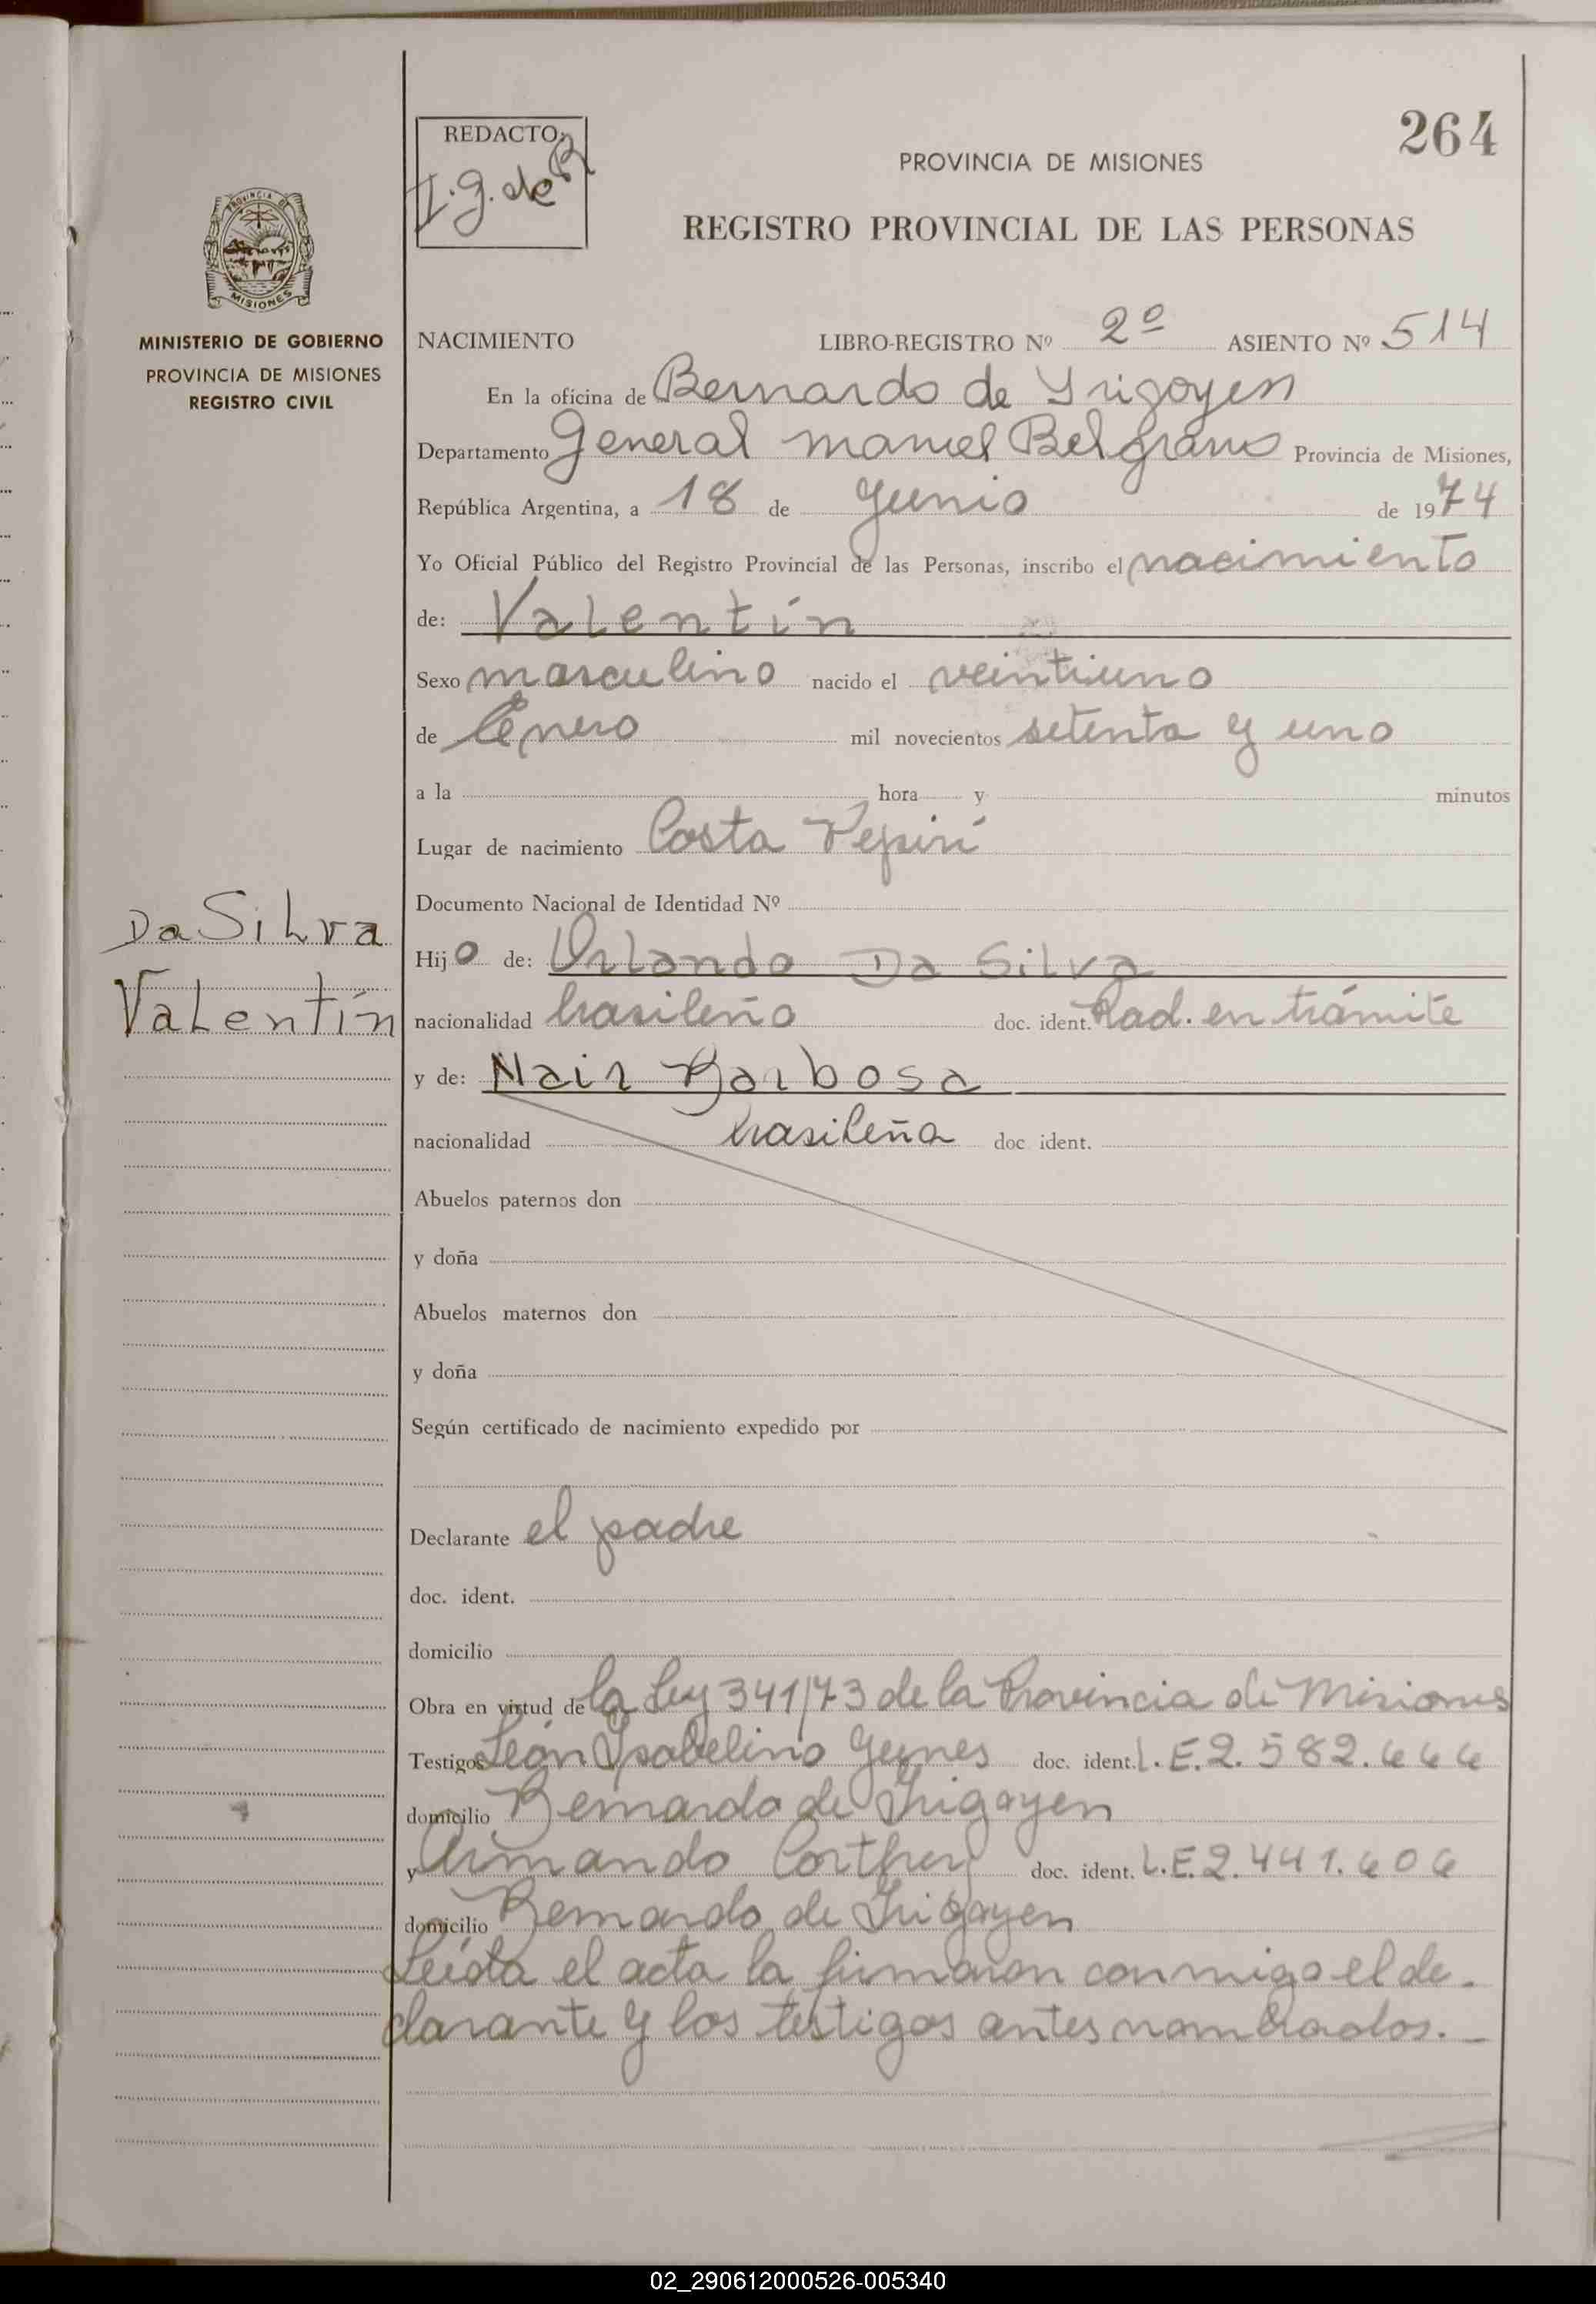 264
REDACTO:
I.g. de B
PROVINCIA DE MISIONES
REGISTRO PROVINCIAL DE LAS PERSONAS
PROVINCIA DE
MISIONES
MINISTERIO DE GOBIERNO
PROVINCIA DE MISIONES
REGISTRO CIVIL
NACIMIENTO LIBRO-REGISTRO Nº 2º ASIENTO Nº 514
En la oficina de Bernardo de Yrigoyen
Departamento General Manuel Belgrano Provincia de Misiones,
República Argentina, a 18 de Junio de 1974
Yo Oficial Público del Registro Provincial de las Personas, inscribo el nacimiento
de: Valentín
Sexo masculino nacido el veintiuno
de Enero mil novecientos setenta y uno
a la hora y minutos
Lugar de nacimiento Costa Pepirí
Documento Nacional de Identidad Nº
Da Silva
Valentín
Hijo de: Orlando Da Silva
nacionalidad brasileño doc. ident. Rad. en trámite
y de: Nair Barbosa
nacionalidad brasileña doc ident.
Abuelos paternos don
y doña
Abuelos maternos don
y doña
Según certificado de nacimiento expedido por
Declarante el padre
doc. ident.
domicilio
Obra en virtud de la Ley 341/73 de la Provincia de Misiones
Testigos León Ysabelino doc. ident. L.E. 2.582.666
domicilio Bernardo de Irigoyen
y Armando doc. ident. L.E. 2.441.606
domicilio Bernardo de Irigoyen
Leída el acta la firmaron conmigo el de-
clarante y los testigos antes nombrados.-
02_290612000526-005340